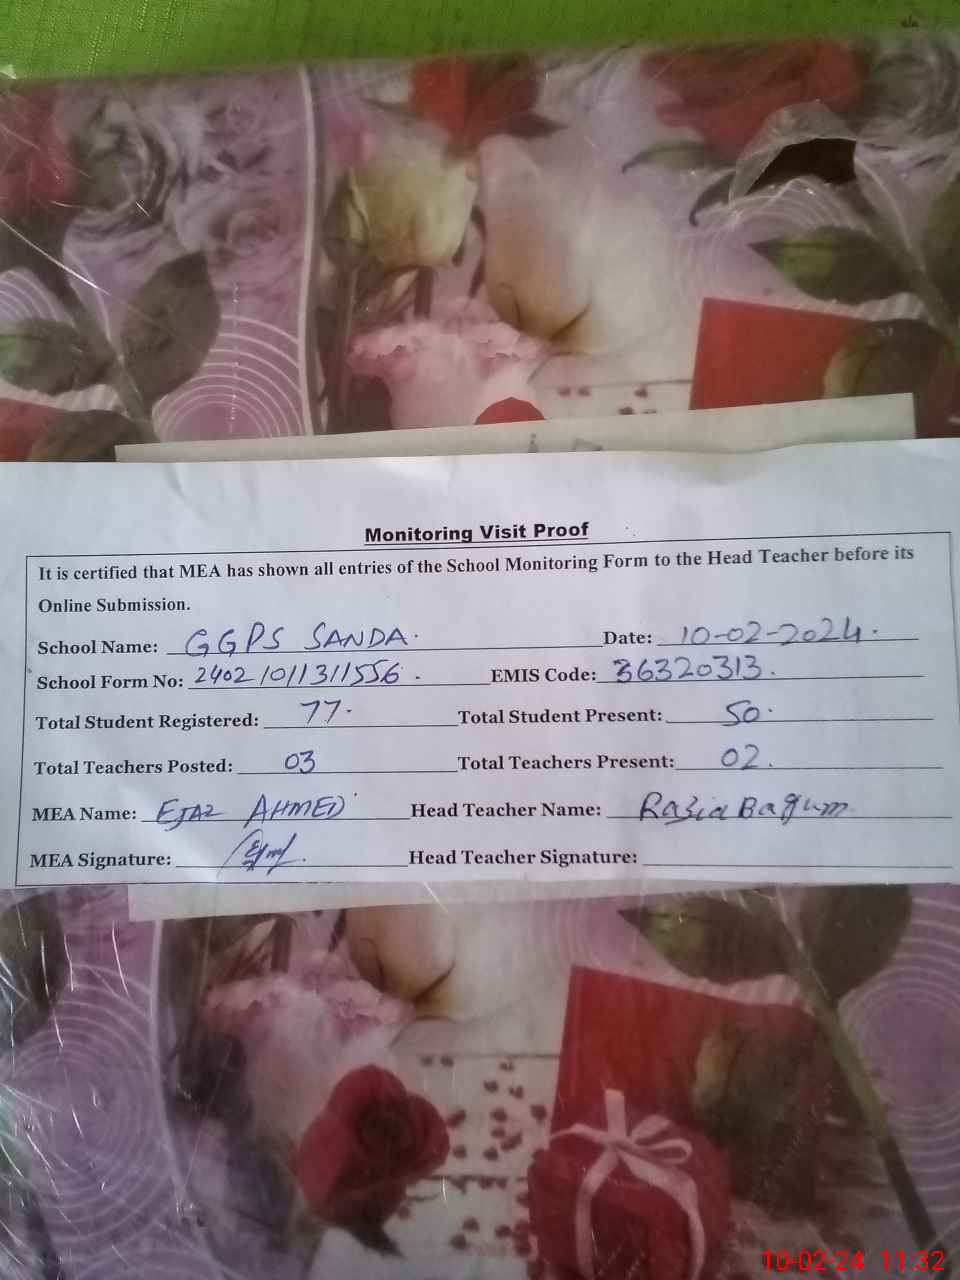 Monitoring Visit Proof
It is certified that MEA has shown all entries of the School Monitoring Form to the Head Teacher before its
Online Submission.
School Name: GGPS SANDA. Date: 10-02-2024.
School Form No: 2402/011311556. EMIS Code: 36320313.
Total Student Registered: 77. Total Student Present: 50.
Total Teachers Posted: 03 Total Teachers Present: 02.
MEA Name: EJAZ AHMED Head Teacher Name: Razia Bagum
MEA Signature: Head Teacher Signature:
10-02-24 11:32